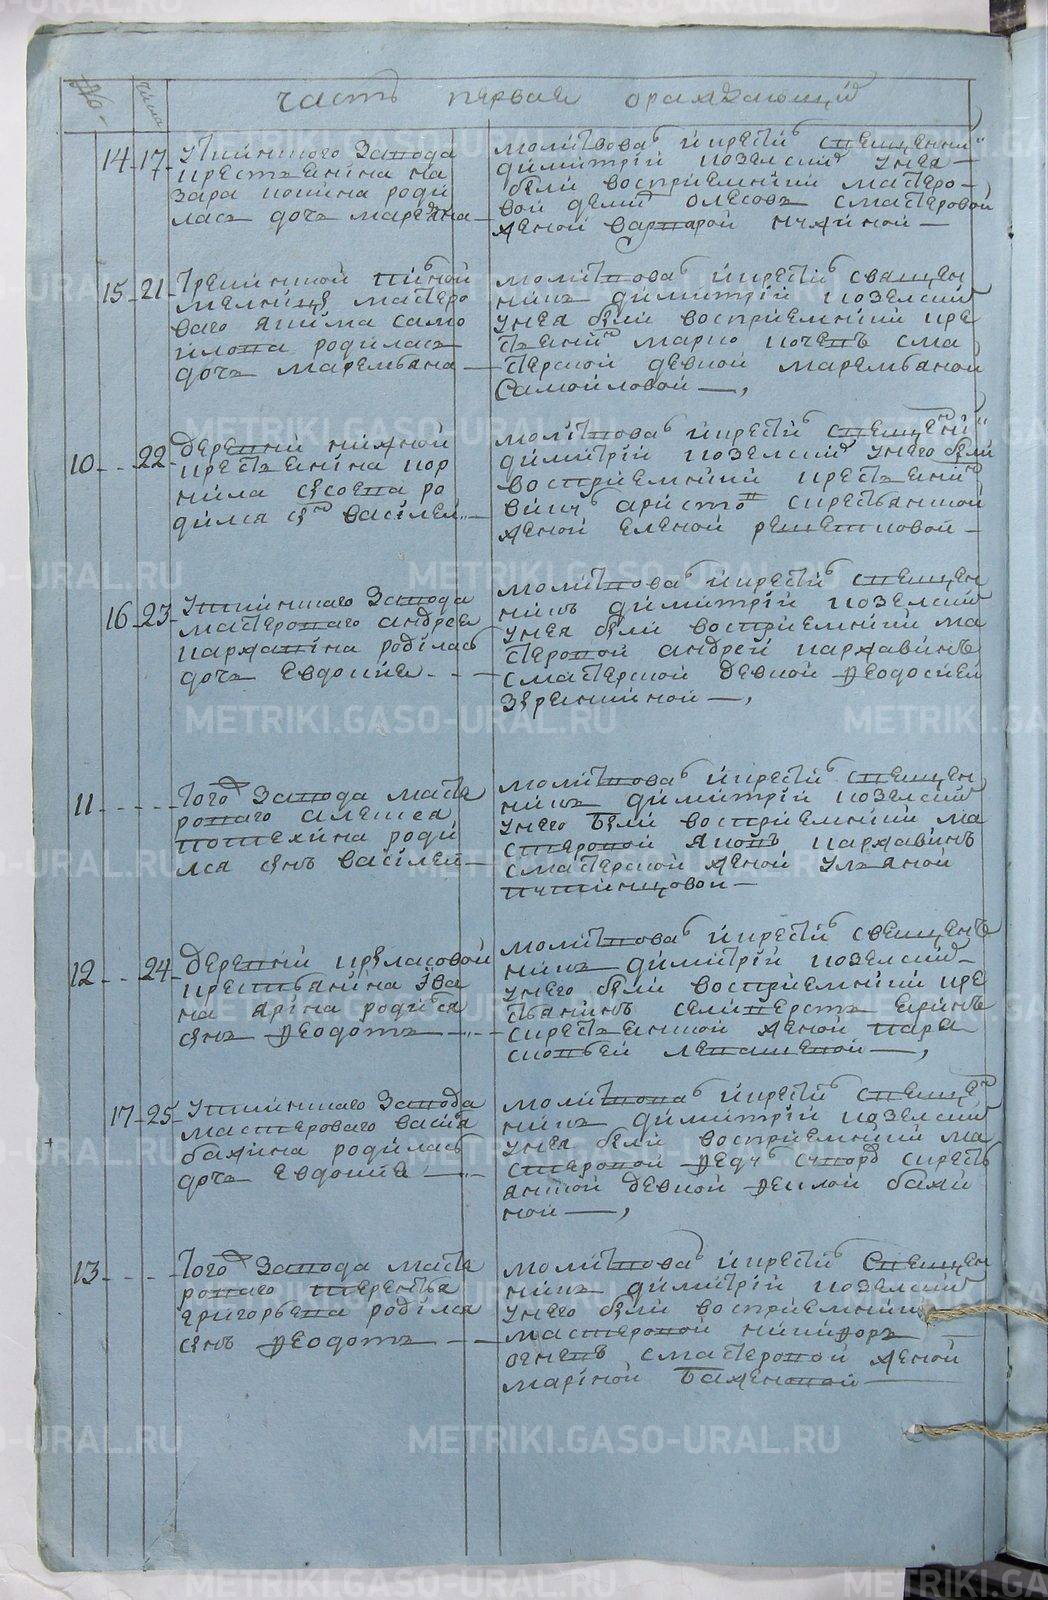 №
числа
часть первая ораждающий
14 17 Уткинского завода
крестьянина на
зара попина роди
лась дочь марьяна
молитвова и крести священни
димитрий козелский у нея
были восприемники мастеро
вой демид олесовъ с мастеровой
женой варварой
15 21
мелнице мастеро
ваго якима само
йлова родилась
дочь маремьяна
молитвова и крести священ
никъ димитрий козелский
у нея были восприемники кре
стьянинъ марко с ма
стерской девкой маремьяной
Самойловой
10 22 деревни нижной
крестьянина кор
нила сысоева ро
дился сынъ василей
молитвова и крести священни
димитрий козелский у него были
восприемники крестьянинъ
с крестьянской
женой еленой решетковой
16 23 Уткинскаго завода
мастероваго андрея
паржавина родилась
дочь евдокия
молитвова и крести священ
никъ димитрий козелский
у нея были восприемники ма
стеровой андрей паржавинъ
с мастерской девкой феодосией
11 Того завода масте
роваго алексея
потехина роди
лся сынъ василей
молитвова и крести священ
никъ димитрий козелский
у него были восприемники ма
стеровой яковъ паржавинъ
с мастерской женой ульяной
12 24 деревни курласовой
крестьянина ива
на ярина родился
сынъ феодотъ
молитвова и крести свещенъ
никъ димитрий козелский
у него были восприемники кре
стьянинъ селиверстъ еринъ
с крестьянской женой пара
сковьей левашевой
17 25 Уткинскаго завода
мастероваго васил
бажина родилась
дочь евдокия
молитвова и крести свещен
никъ димитрий козелский
у нея были восприемники ма
стеровой с кресть
янской девкой феклой бажи
ной
13 Того завода масте
роваго терентья
григорьева родился
сынъ феодотъ
молитвова и крести Свещен
никъ димитрий козелский
у него были восприемники
мастеровой никифоръ
с мастеровой женой
мариной баженовой
METRIKI.GASO-URAL.RU